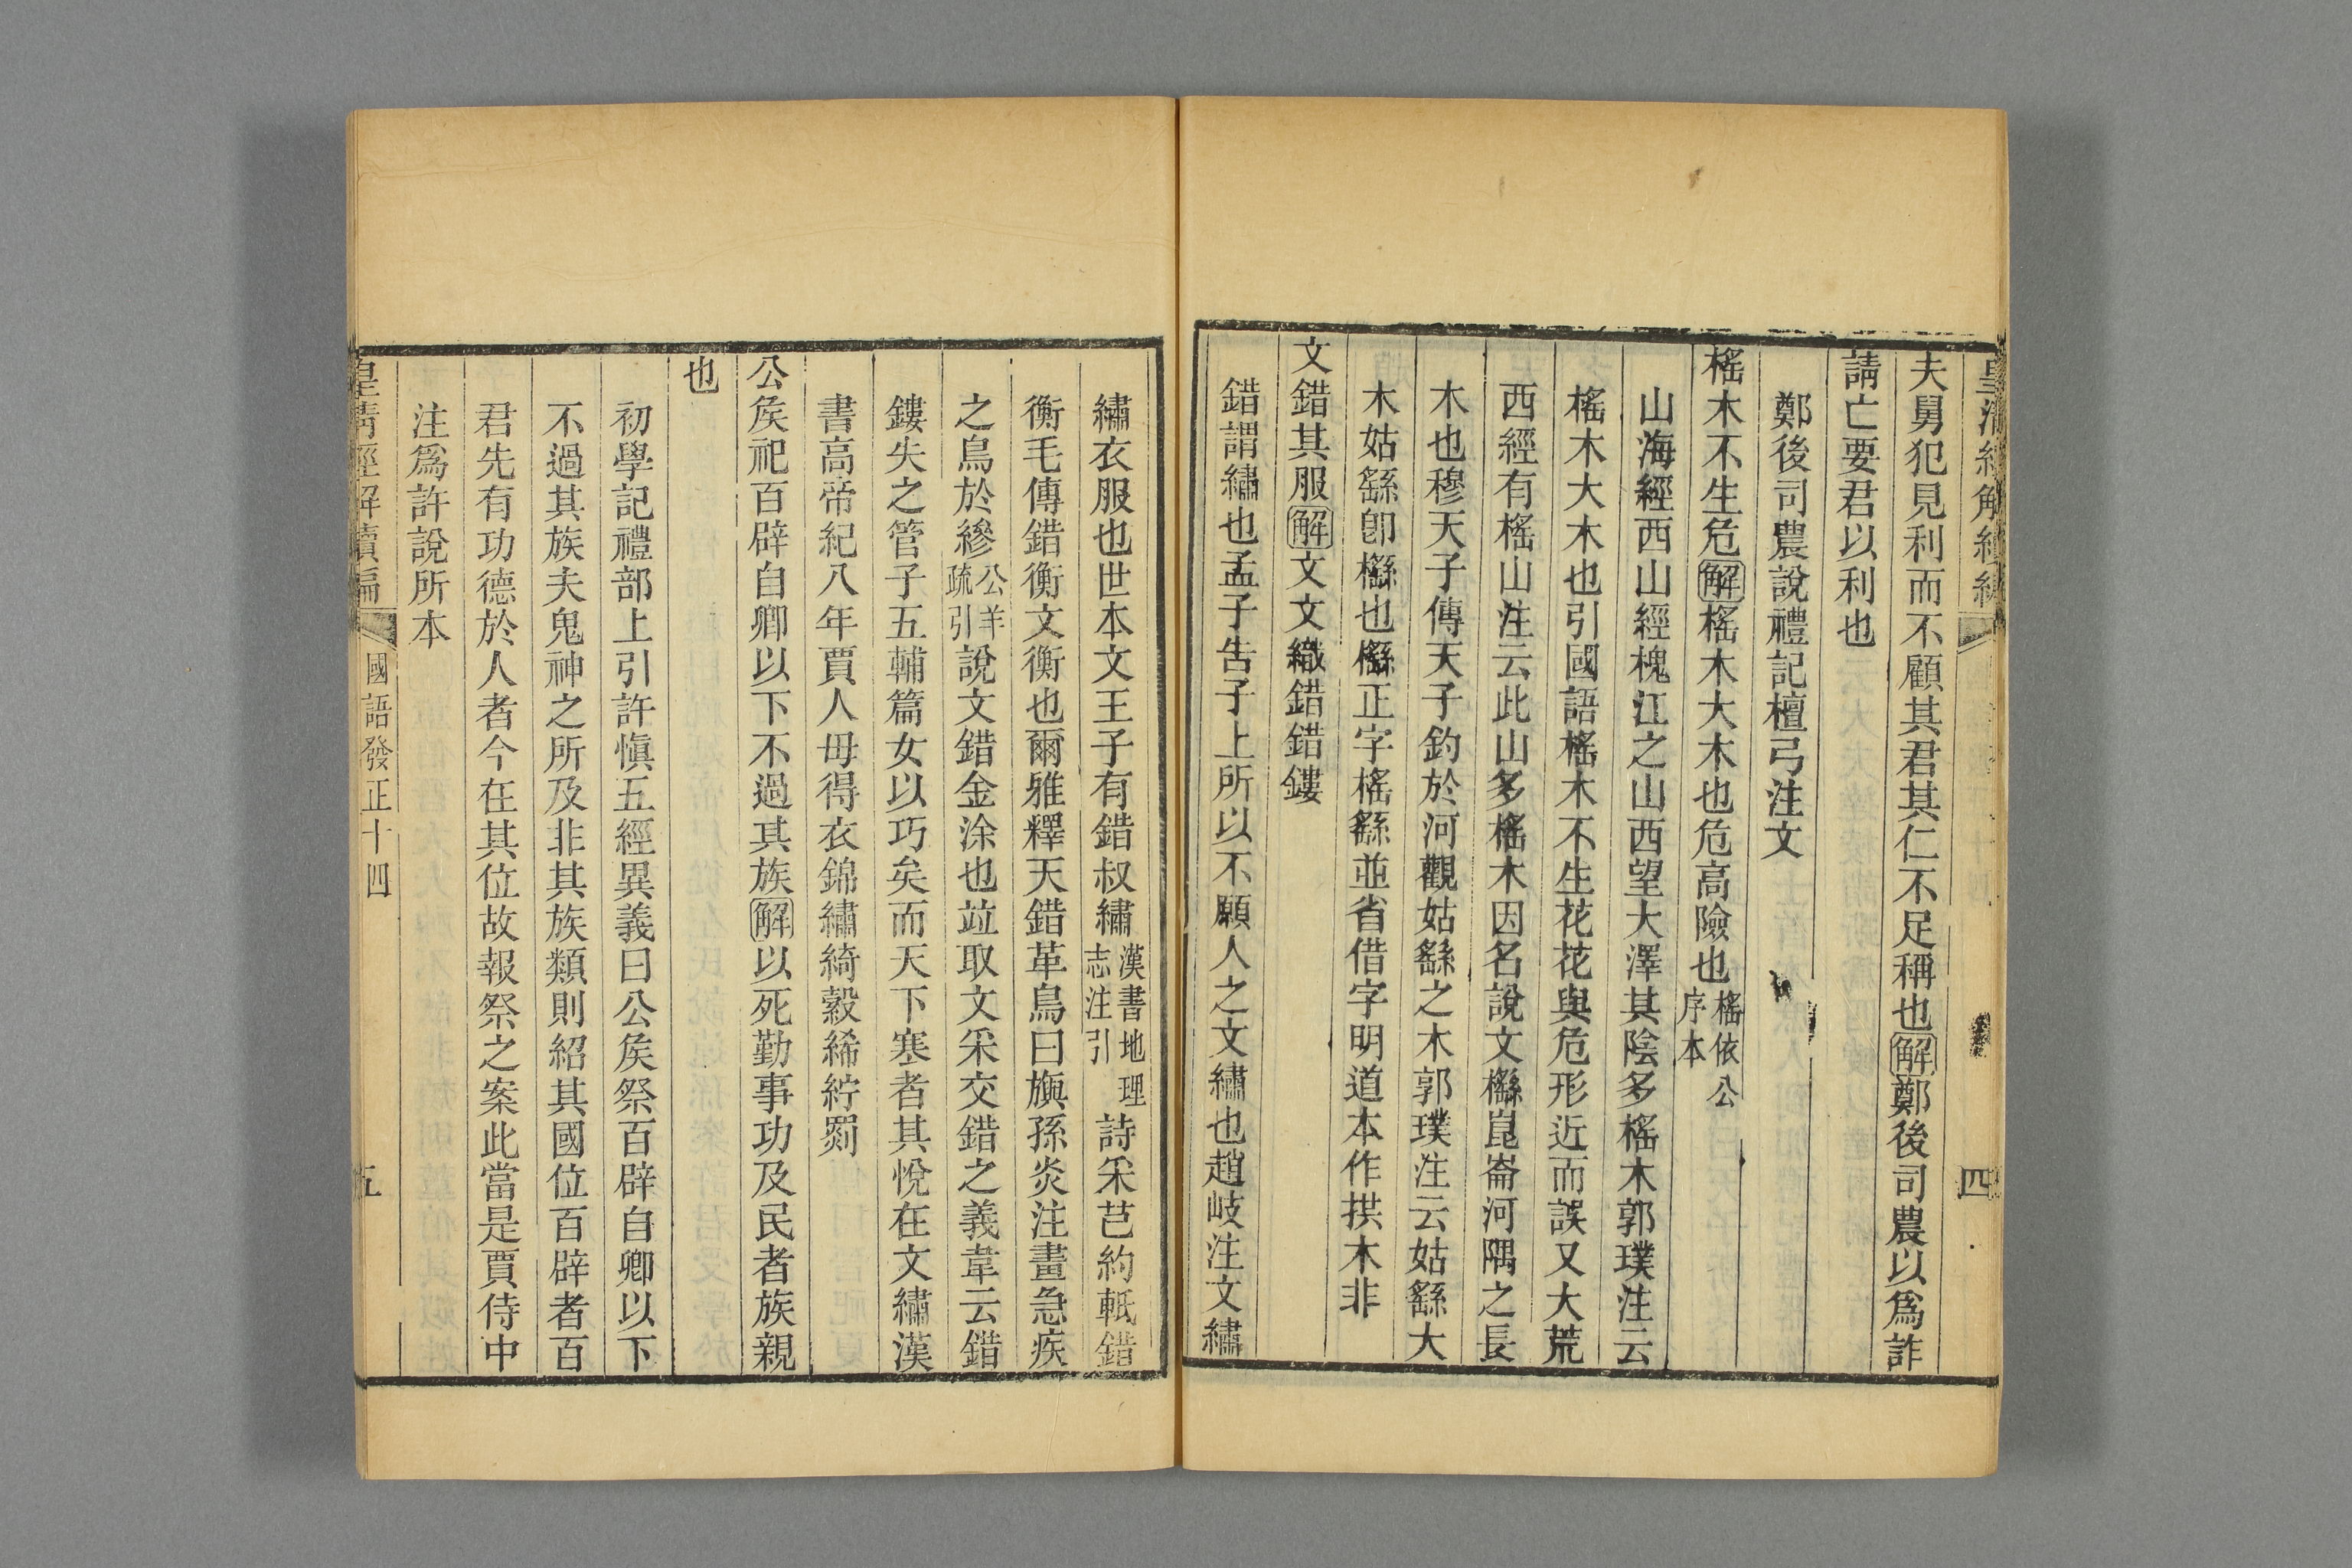 夫舅犯見利而不顧其君其仁不足稱也解鄭後司農以爲詐
請亡要君以利也
鄭後司農說禮記檀弓注文
榣木不生危解榣木大木也危高險也榣依公序本
山海經西山經槐江之山西望大澤其陰多榣木郭璞注云
榣木大木也引國語榣木不生花花與危形近而誤又大荒
西經有榣山注云此山多榣木因名說文櫾崑崙河隅之長
木也穆天子傳天子釣於河觀姑繇之木郭璞注云姑繇大
木姑繇卽櫾也櫾正字榣繇並省借字明道本作拱木非
文錯其服解文文織錯錯鏤
錯謂繡也孟子告子上所以不願人之文繡也趙岐注文繡
繡衣服也世本文王子有錯叔繡漢書地理志注引詩采芑約軝錯
衡毛傳錯衡文衡也爾雅釋天錯革鳥曰旟孫炎注畫急疾
之鳥於縿公羊疏引說文錯金涂也竝取文采交錯之義韋云錯
鏤失之管子五輔篇女以巧矣而天下寒者其悅在文繡漢
書高帝紀八年賈人毋得衣錦繡綺縠絺紵罽
公矦祀百辟自卿以下不過其族解以死勤事功及民者族親
也
初學記禮部上引許愼五經異義曰公矦祭百辟自卿以下
不過其族夫鬼神之所及非其族類則紹其國位百辟者百
君先有功德於人者今在其位故報祭之案此當是賈侍中
注爲許說所本
皇清經解續編
國語發正十四
五